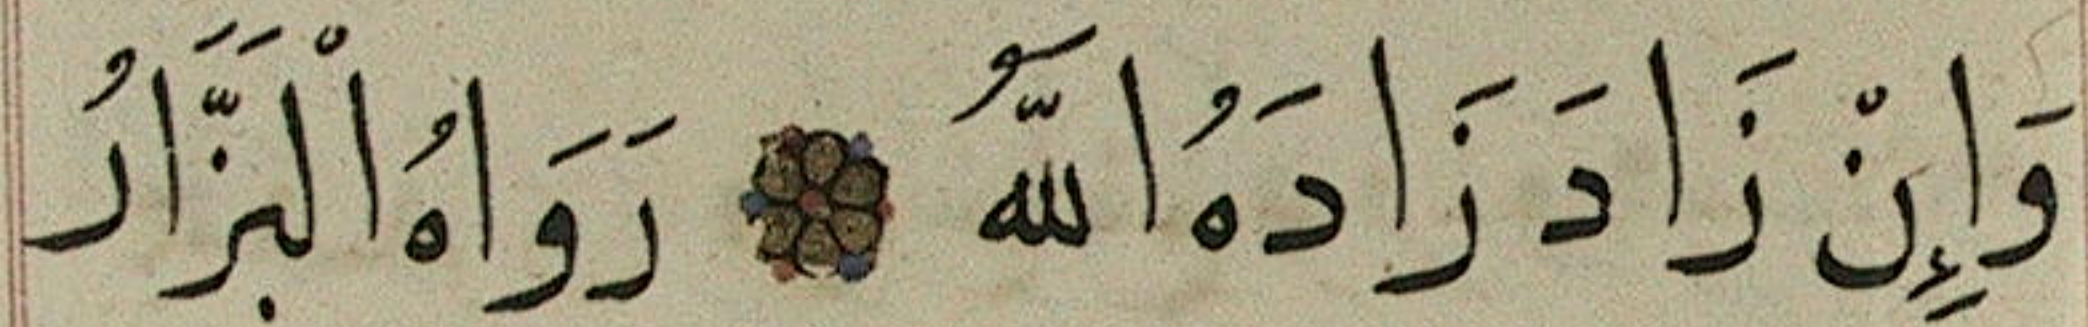 وَإِنْ زَادَ زَادَهُ اللَّهُ رَوَاهُ الْبَزَّارُ